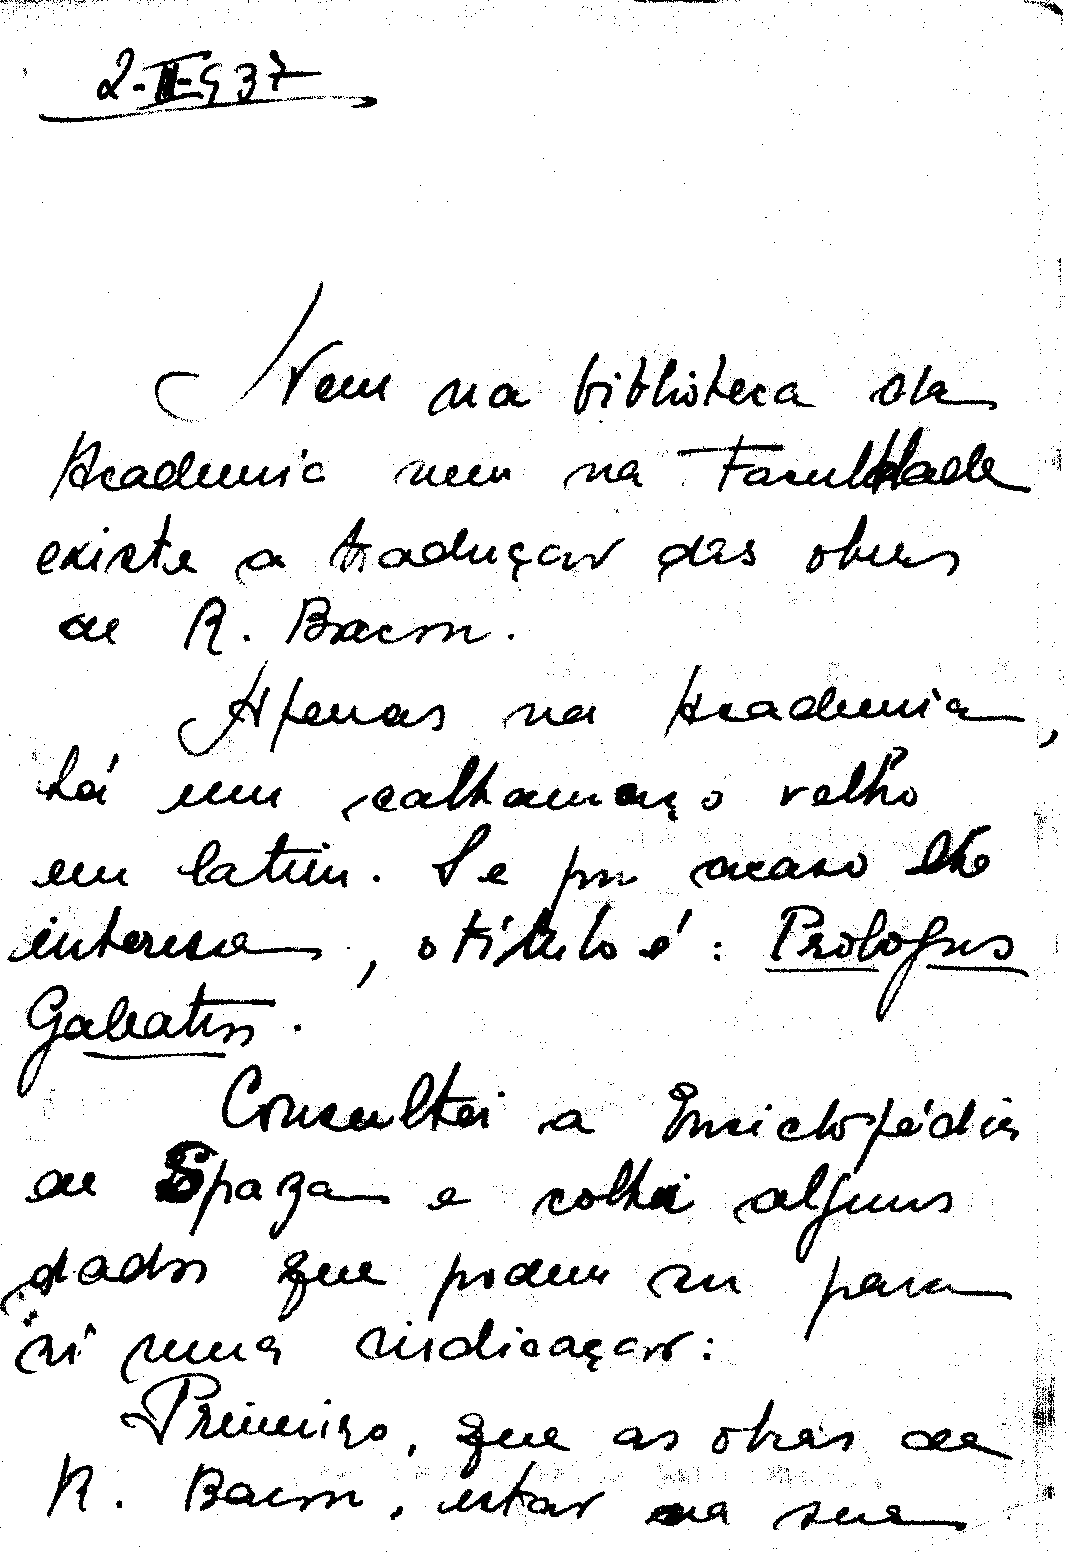 2-II-937
Nem na biblioteca da
Academia nem na Faculdade
existe a tradução das obras
de R. Bacon.
Apenas na Academia,
há um calhamaço velho
em latim. Se por acaso lhe
interessa, o título é: Prologus
Galeatus.
Consultei a Enciclopédia
de Spaza e colhi alguns
dados que podem ser para
si uma indicação:
Primeiro, que as obras de
R. Bacon, estão na sua